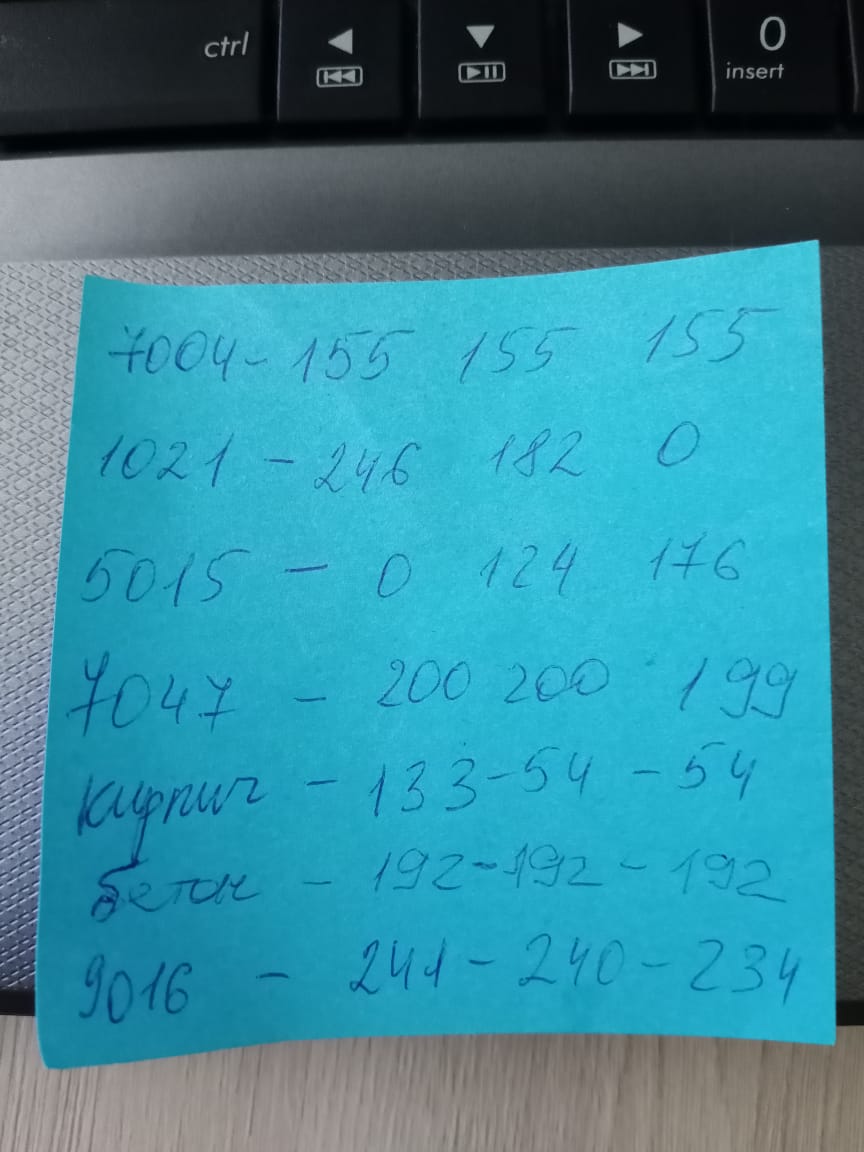 ctrl
0
insert
7004 - 155 155 155
1021 - 246 182 0
5015 - 0 124 176
7047 - 200 200 199
кирпич - 133 - 54 - 54
бетон - 192 - 192 - 192
9016 - 241 - 240 - 234